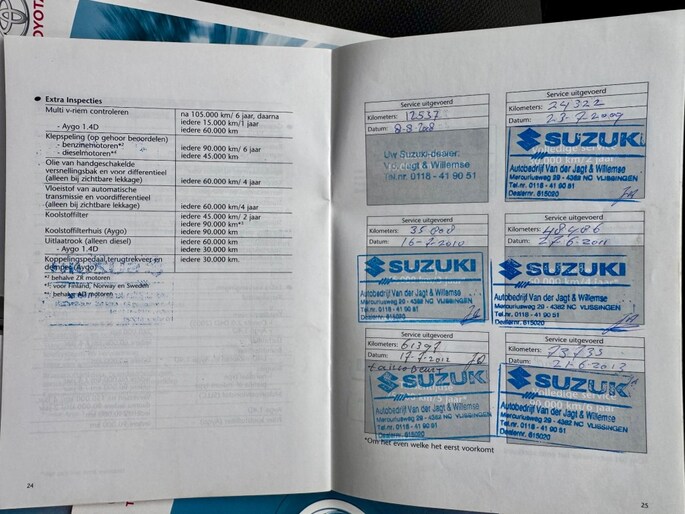 TOYOTA
Extra Inspecties
Multi v-riem controleren
na 105.000 km/ 6 jaar, daarna
iedere 15.000 km/1 jaar
- Aygo 1.4D
iedere 60.000 km
Klepspeling (op gehoor beoordelen)
- benzinemotoren*²
iedere 90.000 km/ 6 jaar
- dieselmotoren*³
iedere 45.000 km
Olie van handgeschakelde
versnellingsbak en voor differentieel
(alleen bij zichtbare lekkage)
iedere 60.000 km/ 4 jaar
Vloeistof van automatische
transmissie en voordifferentieel
(alleen bij zichtbare lekkage)
iedere 60.000 km/4 jaar
Koolstoffilter
iedere 45.000 km/ 2 jaar
iedere 90.000 km*³
Koolstoffilterhuis (Aygo)
iedere 90.000 km
Uitlaatrook (alleen diesel)
iedere 60.000 km
- Aygo 1.4D
iedere 30.000 km
Koppelingspedaal,terugtrekveer en
demper (Aygo)
iedere 30.000 km.
ZR motoren
voor Finland, Norway en Sweden
AD motoren
24
Service uitgevoerd
Kilometers: 12537
Datum: 8-8-2008
Uw Suzuki-dealer:
Van der Jagt & Willemse
Tel.nr. 0118 - 41 90 51
Service uitgevoerd
Kilometers: 24322
Datum: 23-7-2009
SUZUKI
Volledige service
Autobedrijf Van der Jagt & Willemse
Mercuriusweg 29 - 4382 NC VLISSINGEN
Tel.nr. 0118 - 41 90 51
Dealernr. 615020
Service uitgevoerd
Kilometers: 35008
Datum: 16-7-2010
SUZUKI
Autobedrijf Van der Jagt & Willemse
Mercuriusweg 29 - 4382 NC VLISSINGEN
Tel.nr. 0118 - 41 90 51
Dealernr. 615020
Service uitgevoerd
Kilometers: 48486
Datum: 27-6-2011
SUZUKI
Autobedrijf Van der Jagt & Willemse
Mercuriusweg 29 - 4382 NC VLISSINGEN
Tel.nr. 0118 - 41 90 51
Dealernr. 615020
Service uitgevoerd
Kilometers: 61397
Datum: 17-7-2012
SUZUKI
Autobedrijf Van der Jagt & Willemse
Mercuriusweg 29 - 4382 NC VLISSINGEN
Tel.nr. 0118 - 41 90 51
Dealernr. 615020
Service uitgevoerd
Kilometers: 73735
Datum: 21-6-2013
SUZUKI
Volledige service
90.000 km/6 jaar
Autobedrijf Van der Jagt & Willemse
Mercuriusweg 29 - 4382 NC VLISSINGEN
Tel.nr. 0118 - 41 90 51
Dealernr. 615020
*Om het even welke het eerst voorkomt
25